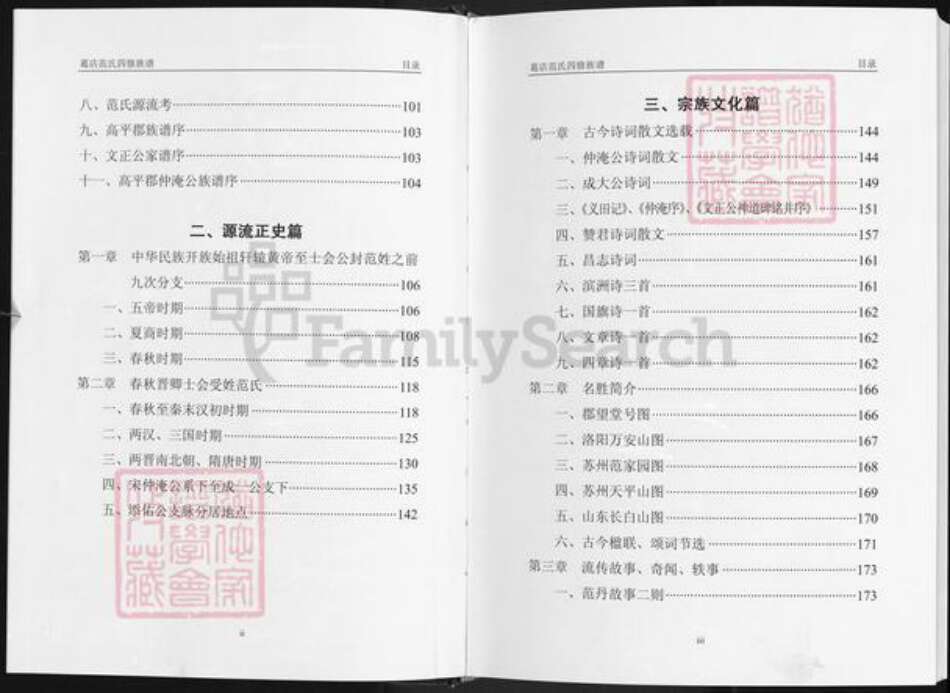 葛店范氏四修族谱 目录
八、范氏源流考 101
九、高平郡族谱序 103
十、文正公家谱序 103
十一、高平郡仲淹公族谱序 104
二、源流正史篇
第一章 中华民族开族始祖轩辕黄帝至士会公封范姓之前
九次分支 106
一、五帝时期 106
二、夏商时期 108
三、春秋时期 115
第二章 春秋晋卿士会受姓范氏 118
一、春秋至秦末汉初时期 118
二、两汉、三国时期 125
三、两晋南北朝、隋唐时期 130
四、宋仲淹公系下至成一公支下 135
五、添佑公支脉分居地点 142
ii
葛店范氏四修族谱 目录
三、宗族文化篇
第一章 古今诗词散文选载 144
一、仲淹公诗词散文 144
二、成大公诗词 149
三、《义田记》、《仲淹序》、《文正公神道碑铭并序》 151
四、赞君诗词散文 157
五、昌志诗词 161
六、滨洲诗三首 161
七、国旗诗一首 162
八、文章诗一首 162
九、四章诗一首 162
第二章 名胜简介 166
一、郡望堂号图 166
二、洛阳万安山图 167
三、苏州范家园图 168
四、苏州天平山图 169
五、山东长白山图 170
六、古今楹联、颂词节选 171
第三章 流传故事、奇闻、轶事 173
一、范丹故事二则 173
iii
FamilySearch